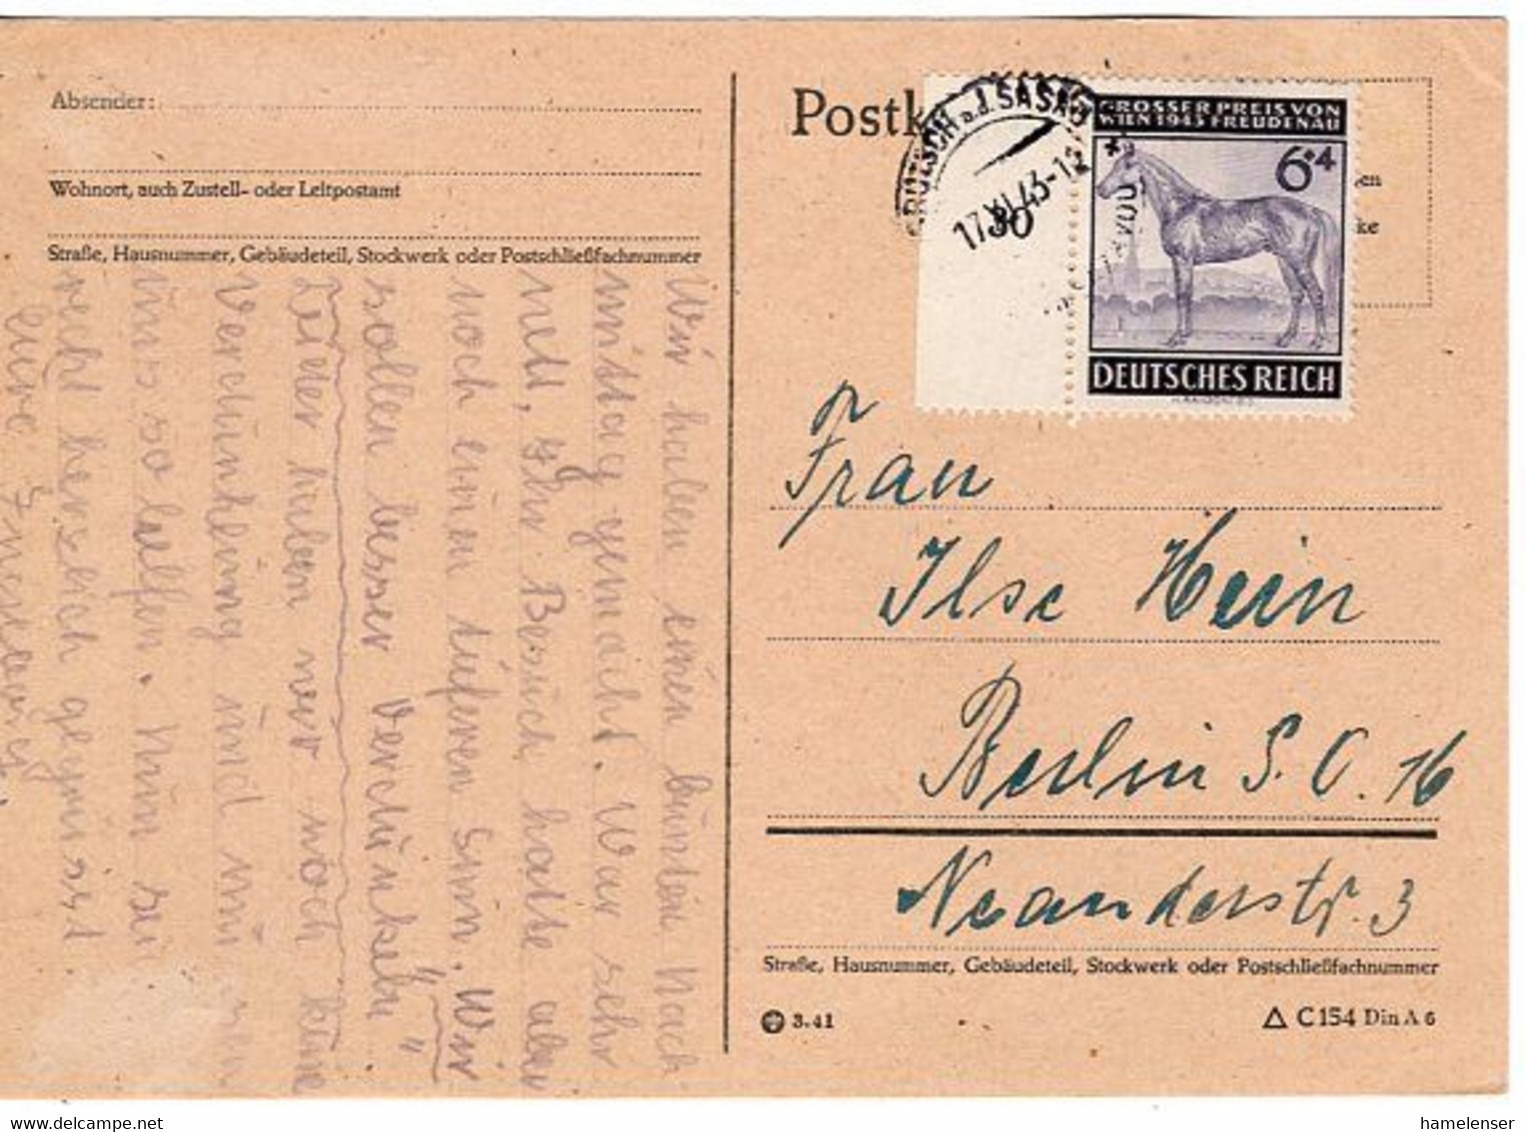 Absender:
Wohnort, auch Zustell- oder Leitpostamt
Straße, Hausnummer, Gebäudeteil, Stockwerk oder Postschließfachnummer
Wir haben einen bunten Nach-
mittag gemacht. War sehr
nett, Ihr Besuch hatte aber
noch einen tieferen Sinn. Wir
sollen besser "verdunkeln"
Leider haben wir noch keine
Verdunkelung und müssen
uns so helfen. Nun sei
recht herzlich gegrüsst
Postk
A. D. SASAU
17.XI.43-12
30
GROSSER PREIS VON
WIEN 1943 FREUDENAU
6+4
DEUTSCHES REICH
en
ke
Frau
Ilse Hein
Berlin S.O. 16
Neanderstr. 3
Straße, Hausnummer, Gebäudeteil, Stockwerk oder Postschließfachnummer
3.41
C 154 Din A 6
www.delcampe.net
hamelenser